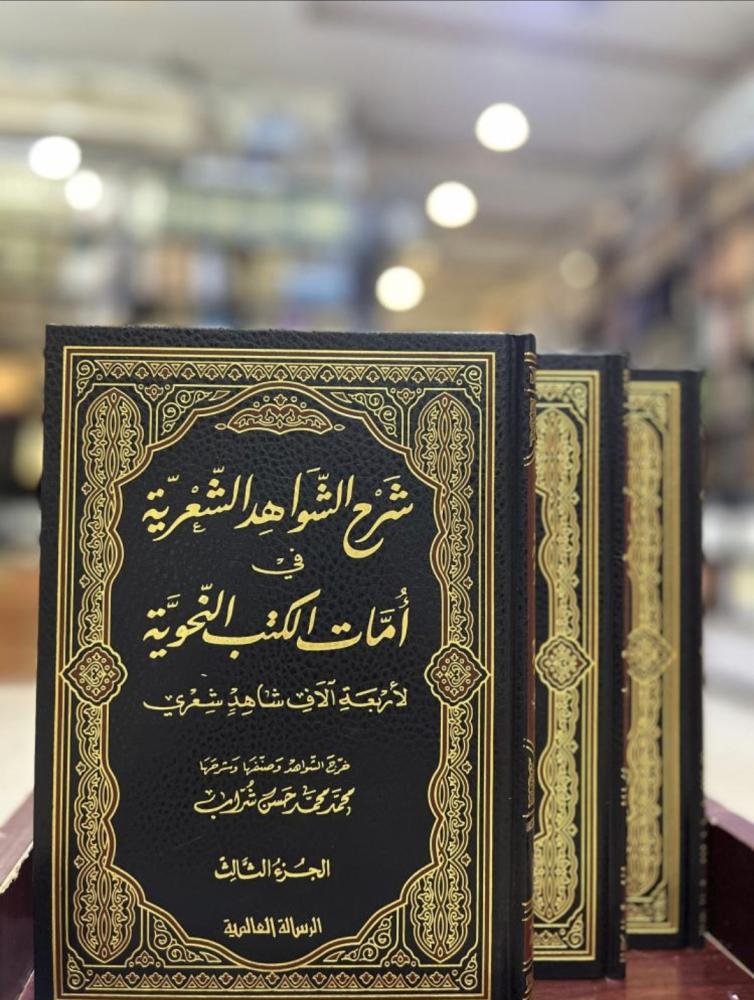 شَرْحُ الشَّوَاهِدِ الشِّعْرِيَّةِ
في
أُمَّاتِ الكتبِ النَّحويَّةِ
لأربَعَةِ آلافِ شَاهِدٍ شِعْري
خرّج الشواهد وصنّفها وشرحها
محمّد محمّد حسن شُرّاب
الجُزءُ الثَّالِث
الرسالة العالمية